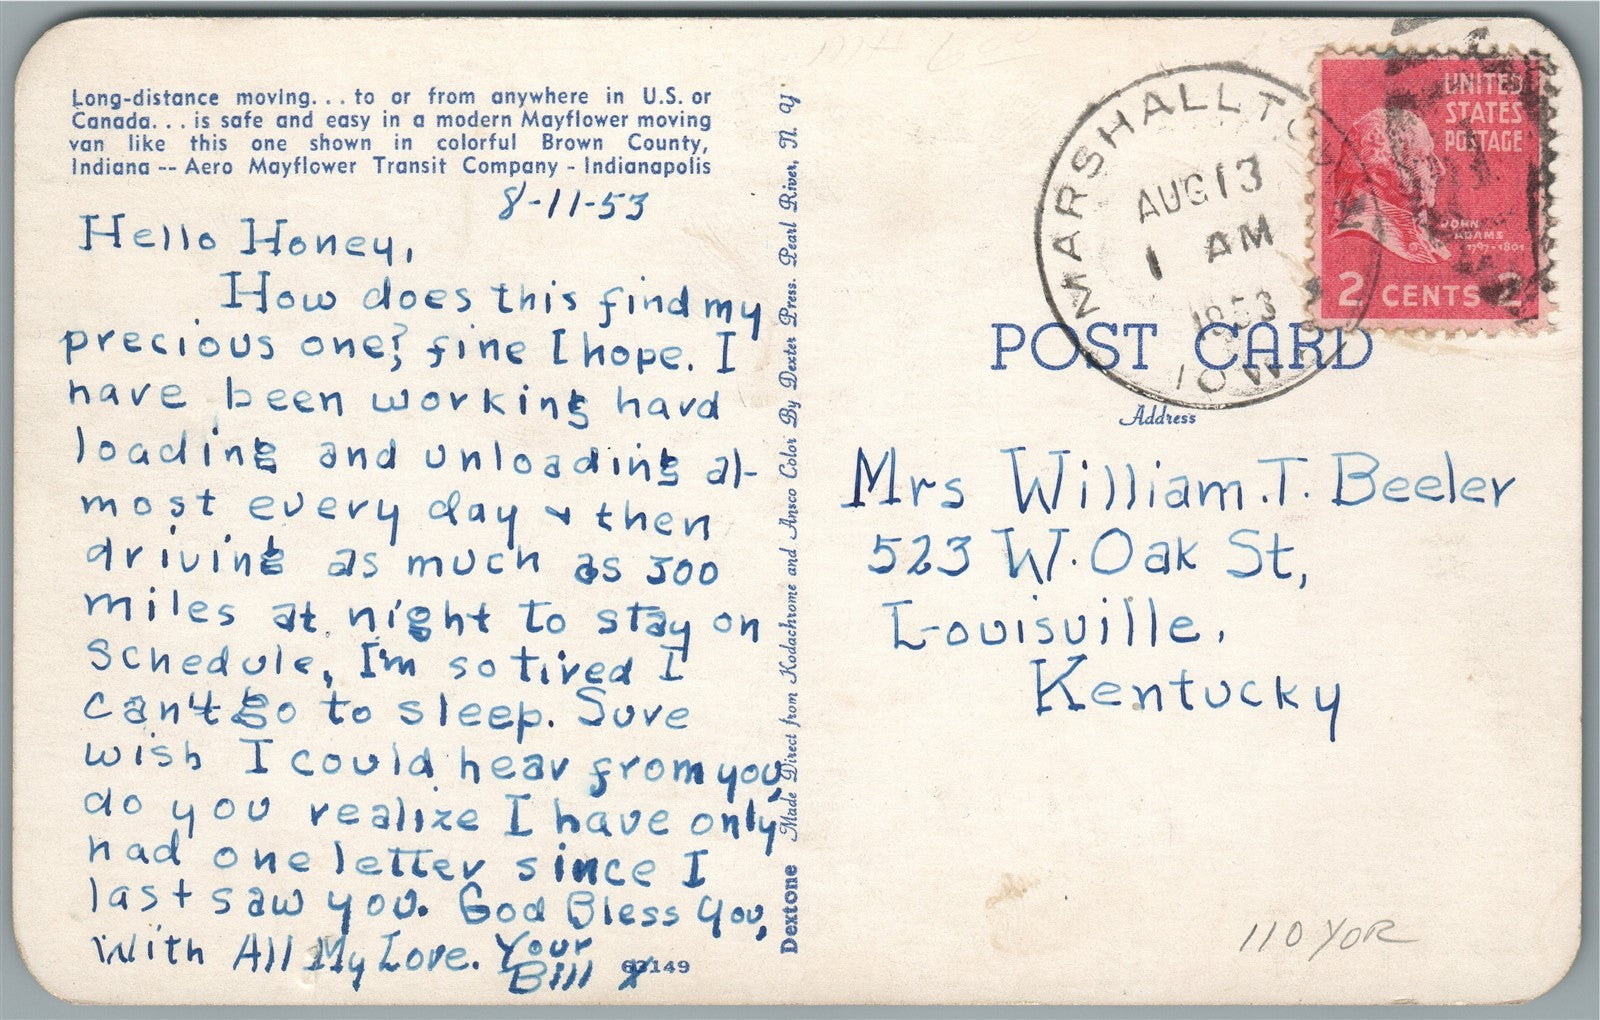 Long-distance moving... to or from anywhere in U.S. or
Canada... is safe and easy in a modern Mayflower moving
van like this one shown in colorful Brown County,
Indiana -- Aero Mayflower Transit Company - Indianapolis
8-11-53
Hello Honey,
How does this find my
precious one? fine I hope. I
have been working hard
loading and unloading al-
most every day & then
driving as much as 300
miles at night to stay on
schedule, I'm so tired I
can't go to sleep. Sure
wish I could hear from you,
do you realize I have only
had one letter since I
last saw you. God Bless You,
With All My Love. Your
Bill X
63149
Dextone Made Direct from Kodachrome and Ansco Color By Dexter Press. Pearl River, N. Y.
MARSHALLTO
IOWA
AUG 13
1 AM
1953
UNITED
STATES
POSTAGE
JOHN
ADAMS
1797-1801
2 CENTS 2
POST CARD
Address
Mrs William.T. Beeler
523 W. Oak St,
Louisville,
Kentucky
110 YOR